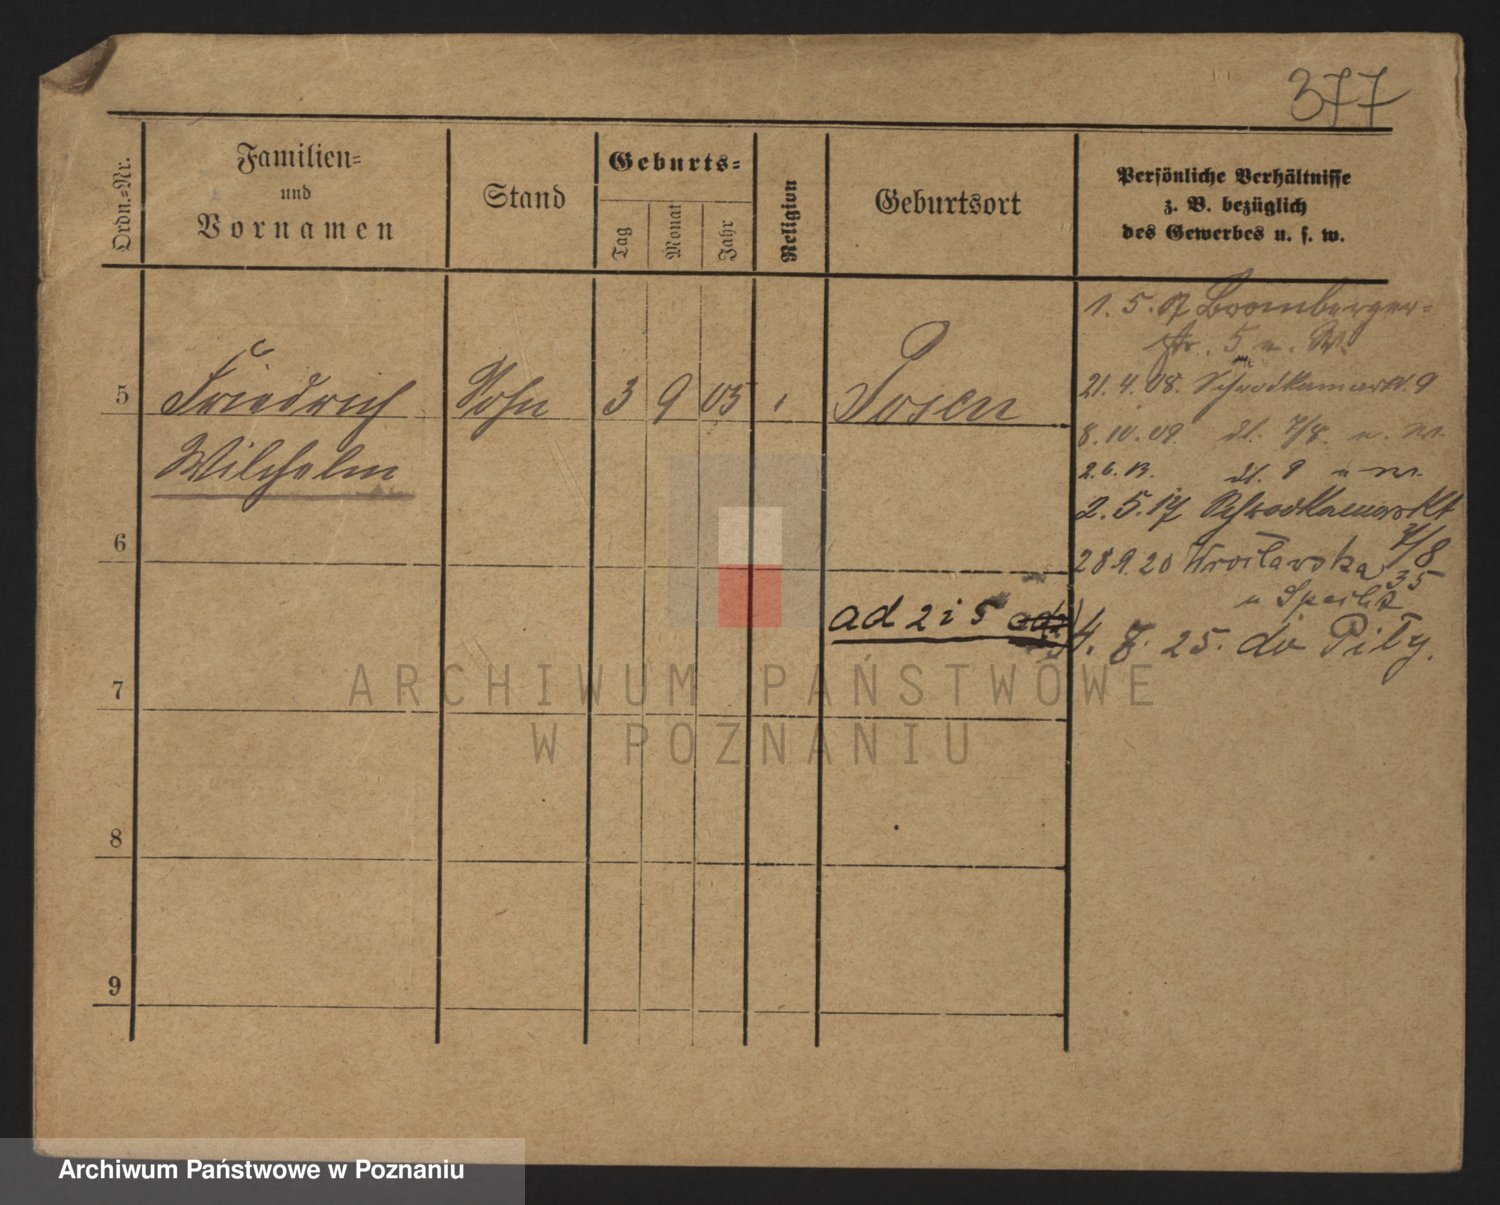 377
Ordn.-Nr.
Familien-
und
Vornamen
Stand
Geburts-
Tag
Monat
Jahr
Religion
Geburtsort
Persönliche Verhältnisse
z. B. bezüglich
des Gewerbes u. s. w.
1. 5. Bromberger-
str. 5 u. W.
5 Friedrich Sohn 3 9 05 Posen
Wilhelm
21. 4. 08. Schrodkamarkt 9
8. 10. 09. dt. 7/8. u. W.
2. 6. 13. dt. 9 u W.
2. 5. 17 Schrodkamarkt
7/8
6
28 9. 20 Wrocławska 35
ad 2 i 5
4. 8. 25. do Piły.
7
8
9
ARCHIWUM PAŃSTWOWE
W POZNANIU
Archiwum Państwowe w Poznaniu